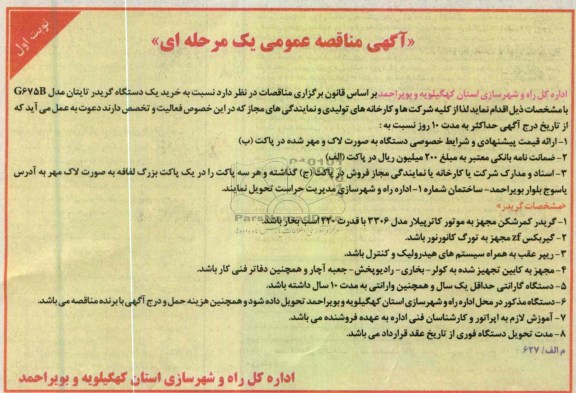 نوبت اول
«آگهی مناقصه عمومی یک مرحله ای»
اداره کل راه و شهرسازی استان کهگیلویه و بویراحمد بر اساس قانون برگزاری مناقصات در نظر دارد نسبت به خرید یک دستگاه گریدر تایتان مدل G۶۷۵B
با مشخصات ذیل اقدام نماید لذا از کلیه شرکت ها و کارخانه های تولیدی و نمایندگی های مجاز که در این خصوص فعالیت و تخصص دارند دعوت به عمل می آید که
از تاریخ درج آگهی حداکثر به مدت ۱۰ روز نسبت به :
۱- ارائه قیمت پیشنهادی و شرایط خصوصی دستگاه به صورت لاک و مهر شده در پاکت (ب)
۲- ضمانت نامه بانکی معتبر به مبلغ ۲۰۰ میلیون ریال در پاکت (الف)
۳- اسناد و مدارک شرکت یا کارخانه یا نمایندگی مجاز فروش در پاکت (ج) گذاشته و هر سه پاکت را در یک پاکت بزرگ لفافه به صورت لاک مهر به آدرس
یاسوج بلوار بویراحمد- ساختمان شماره ۱-اداره راه و شهرسازی مدیریت حراست تحویل نمایند.
«مشخصات گریدر»
۱- گریدر کمرشکن مجهز به موتور کاترپیلار مدل ۳۳۰۶ با قدرت ۲۳۰ اسب بخار باشد.
۲- گیربکس zf مجهز به تورگ کانورتور باشد.
۳- ریپر عقب به همراه سیستم های هیدرولیک و کنترل باشد.
۴- مجهز به کابین تجهیز شده به کولر- بخاری- رادیوپخش- جعبه آچار و همچنین دفاتر فنی کار باشد.
۵- دستگاه گارانتی حداقل یک سال و همچنین وارانتی به مدت ۱۰ سال داشته باشد.
۶- دستگاه مذکور در محل اداره راه و شهرسازی استان کهگیلویه و بویراحمد تحویل داده شود و همچنین هزینه حمل و درج آگهی با برنده مناقصه می باشد.
۷- آموزش لازم به اپراتور و کارشناسان فنی اداره به عهده فروشنده می باشد.
۸- مدت تحویل دستگاه فوری از تاریخ عقد قرارداد می باشد.
م الف/ ۶۲۷
اداره کل راه و شهرسازی استان کهگیلویه و بویراحمد